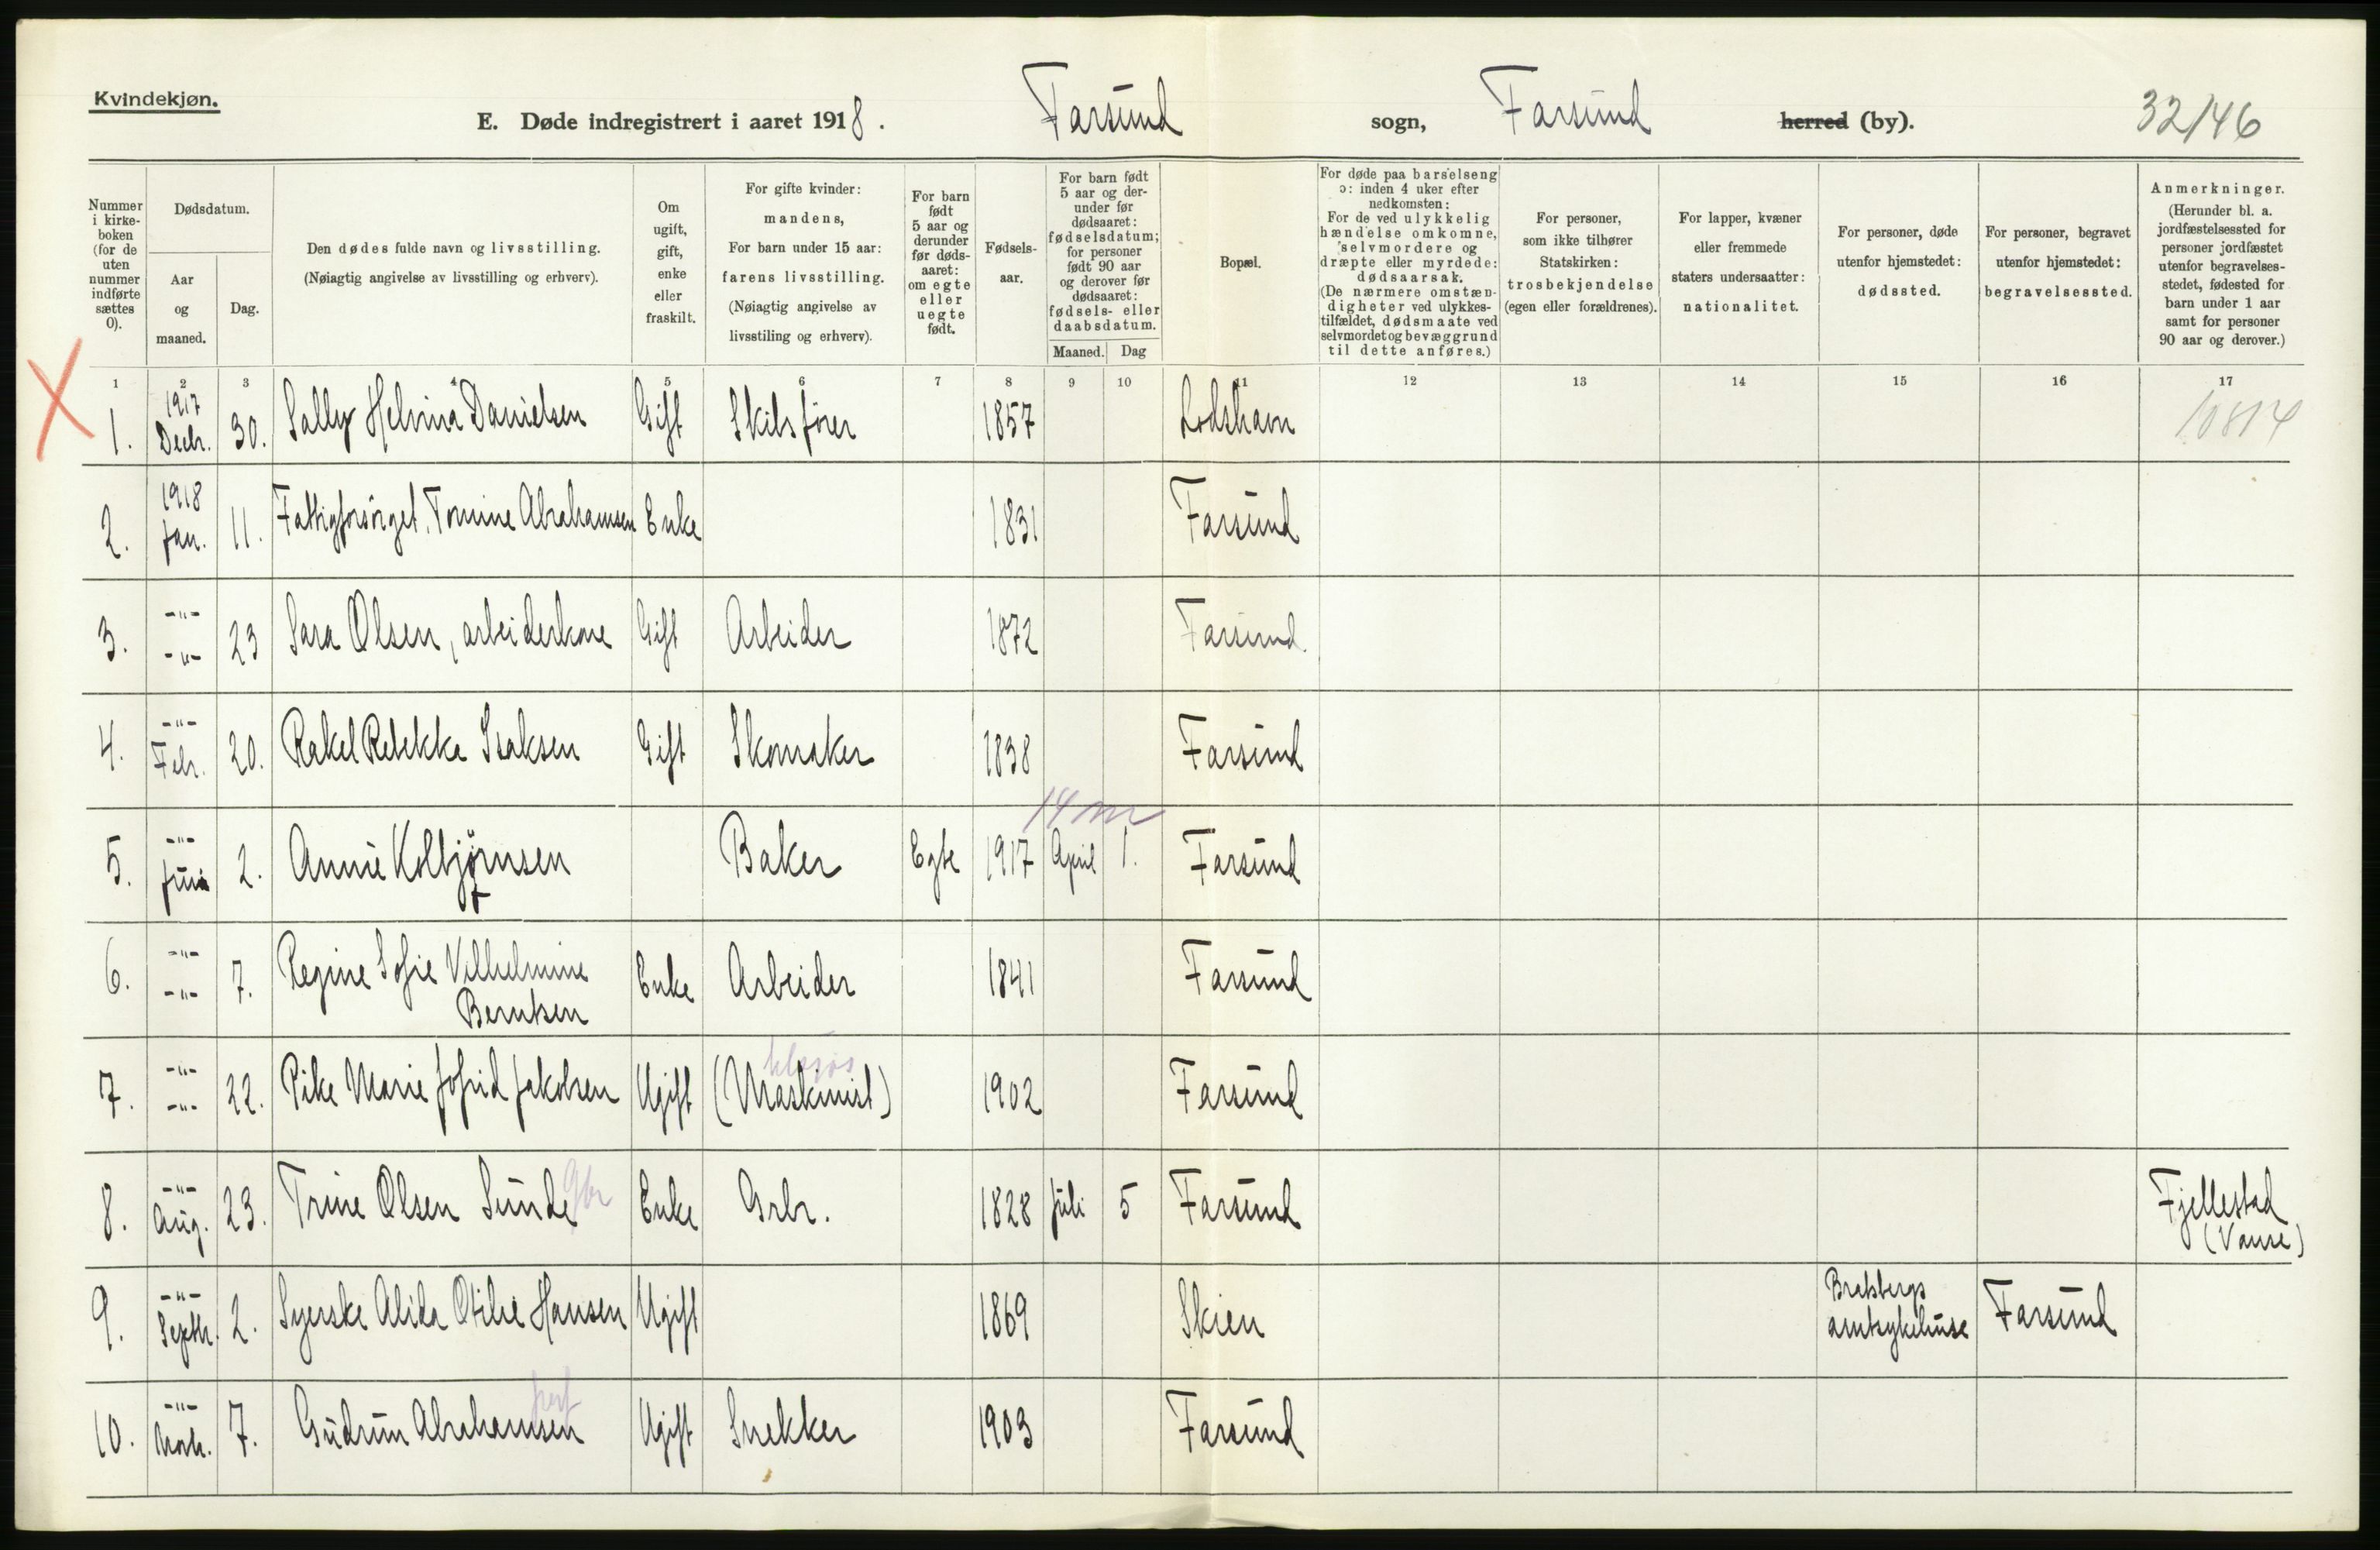 Kvindekjøn.
E. Døde indregistrert i aaret 1918.
Farsund sogn, Farsund herred (by).
32/46
Nummer i kirke-boken (for de uten nummer indførte sættes 0).
Dødsdatum.
Aar og maaned.
Dag.
Den dødes fulde navn og livsstilling.
(Nøiagtig angivelse av livsstilling og erhverv).
Om ugift, gift, enke eller fraskilt.
For gifte kvinder: mandens,
For barn under 15 aar: farens livsstilling.
(Nøiagtig angivelse av livsstiling og erhverv).
For barn født 5 aar og derunder før døds-aaret: om egte eller uegte født.
Fødsels-aar.
For barn født 5 aar og der-under før dødsaaret: fødselsdatum; for personer født 90 aar og derover før dødsaaret: fødsels- eller daabsdatum.
Maaned. Dag
Bopæl.
For døde paa barselseng ɔ: inden 4 uker efter nedkomsten:
For de ved ulykkelig hændelse omkomne, selvmordere og dræpte eller myrdede: dødsaarsak.
(De nærmere omstæn-digheter ved ulykkes-tilfældet, dødsmaate ved selvmordet og bevæggrund til dette anføres.)
For personer, som ikke tilhører Statskirken: trosbekjendelse (egen eller forældrenes).
For lapper, kvæner eller fremmede staters undersaatter: nationalitet.
For personer, døde utenfor hjemstedet: dødssted.
For personer, begravet utenfor hjemstedet: begravelsessted.
Anmerkninger.
(Herunder bl. a. jordfæstelsessted for personer jordfæstet utenfor begravelses-stedet, fødested for barn under 1 aar samt for personer 90 aar og derover.)
1 2 3 4 5 6 7 8 9 10 11 12 13 14 15 16 17
1. 1917 Decbr. 30. Sally Helvina Danielsen Gift Skibsfører 1857 Lodshavn 10814
2. 1918 Jan. 11. Fattigforsørget, Tomine Abrahamsen Enke 1831 Farsund
3. -"- -"- 23 Sara Olsen, arbeiderkone Gift Arbeider 1872 Farsund
4. -"- Febr. 20. Rakel Rebekka Isaksen Gift Skomaker 1838 Farsund
14 m
5. -"- Juni 2. Annie Kolbjørnsen Baker Egte 1917 April 1. Farsund
6. -"- -"- 7. Regine Sofie Vilhelmine Berntsen Enke Arbeider 1841 Farsund
7. -"- -"- 22. Pike Marie Jofrid Jakobsen Ugift (Maskinist) 1902 Farsund
8. -"- Aug. 23. Trine Olsen Sunde Enke Grbr. 1828 Juli 5 Farsund Fjellestad (Vanse)
9. -"- Septbr. 2. Syerske Alida Otilie Hansen Ugift 1869 Skien Bratsbergs amtsykehuse Farsund
10. -"- Novb. 7. Gudrun Abrahamsen Ugift Snekker 1903 Farsund